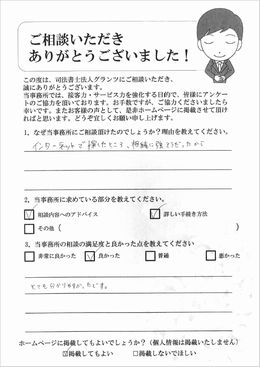 ご相談いただき
ありがとうございました!
この度は、司法書士法人グランツにご相談いただき、
誠にありがとうございます。
当事務所では、接客力・サービス力を強化する目的で、皆様にアンケー
トのご協力を頂いております。お手数ですが、ご協力くださいましたら
幸いです。またお客様の声として、是非ホームページに掲載させて頂け
ればと思います。どうぞ宜しくお願い申し上げます。
1. なぜ当事務所にご相談頂けたのでしょうか?理由を教えてください。
インターネットで探したところ、相続に強そうだったから
2. 当事務所に求めている部分を教えてください。
☑相談内容へのアドバイス ☑詳しい手続き方法
□その他( )
3. 当事務所の相談の満足度と良かった点を教えてください
□非常に良かった ☑良かった □普通 □悪かった
とても分かりやすかったです。
ホームページに掲載してもよいでしょうか?(個人情報は掲載いたしません)
☑掲載してもよい □掲載しないでほしい